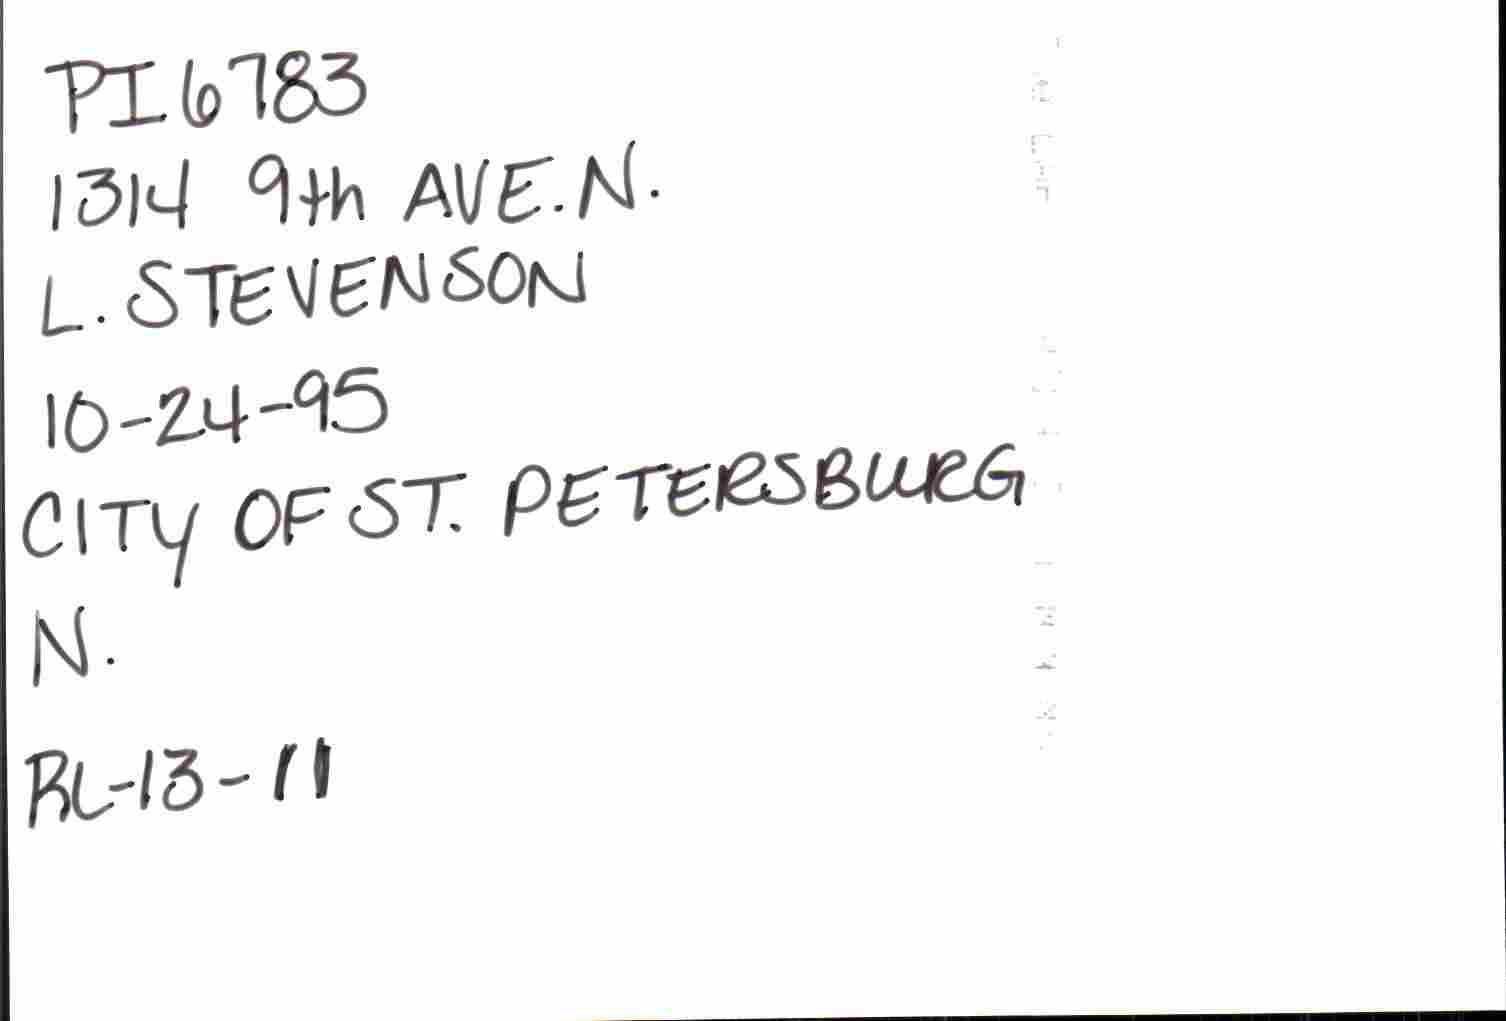 PI6783
1314 9th AVE. N.
L. STEVENSON
10-24-95
CITY OF ST. PETERSBURG
N.
RL-13-11